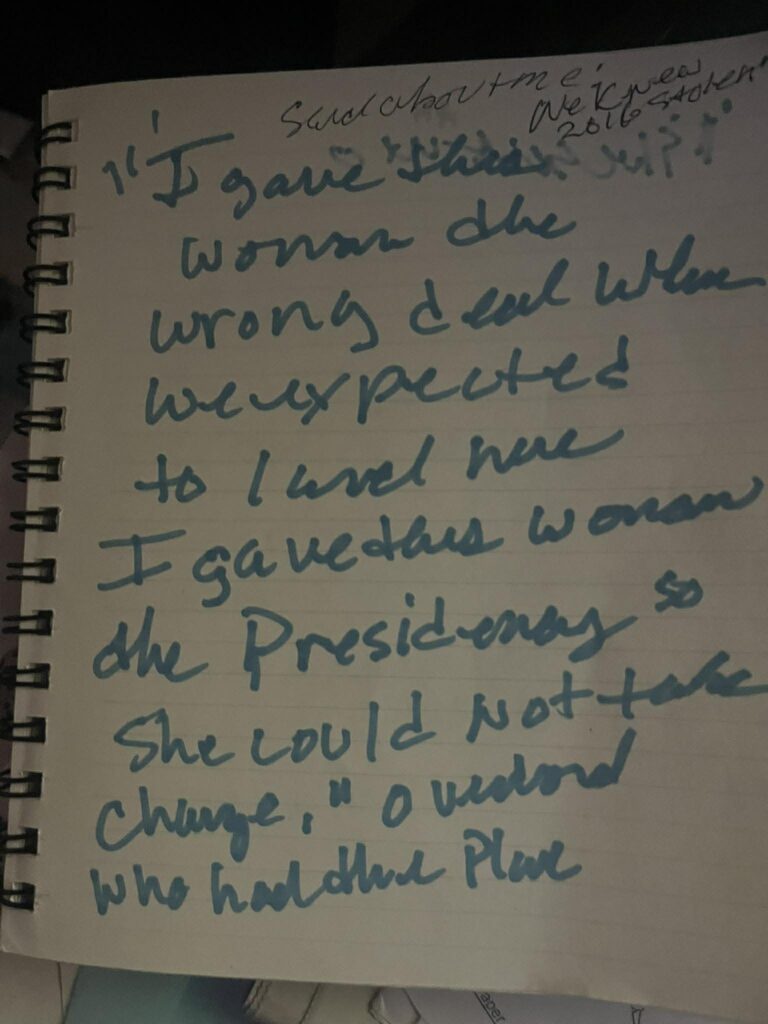 Said about me:
We Knew
2016 stolen"
"I gave this
woman the
wrong deal when
we expected
to land here
I gave this woman
the Presidency so
She could Not take
Charge," overlord
who had the Place
aper